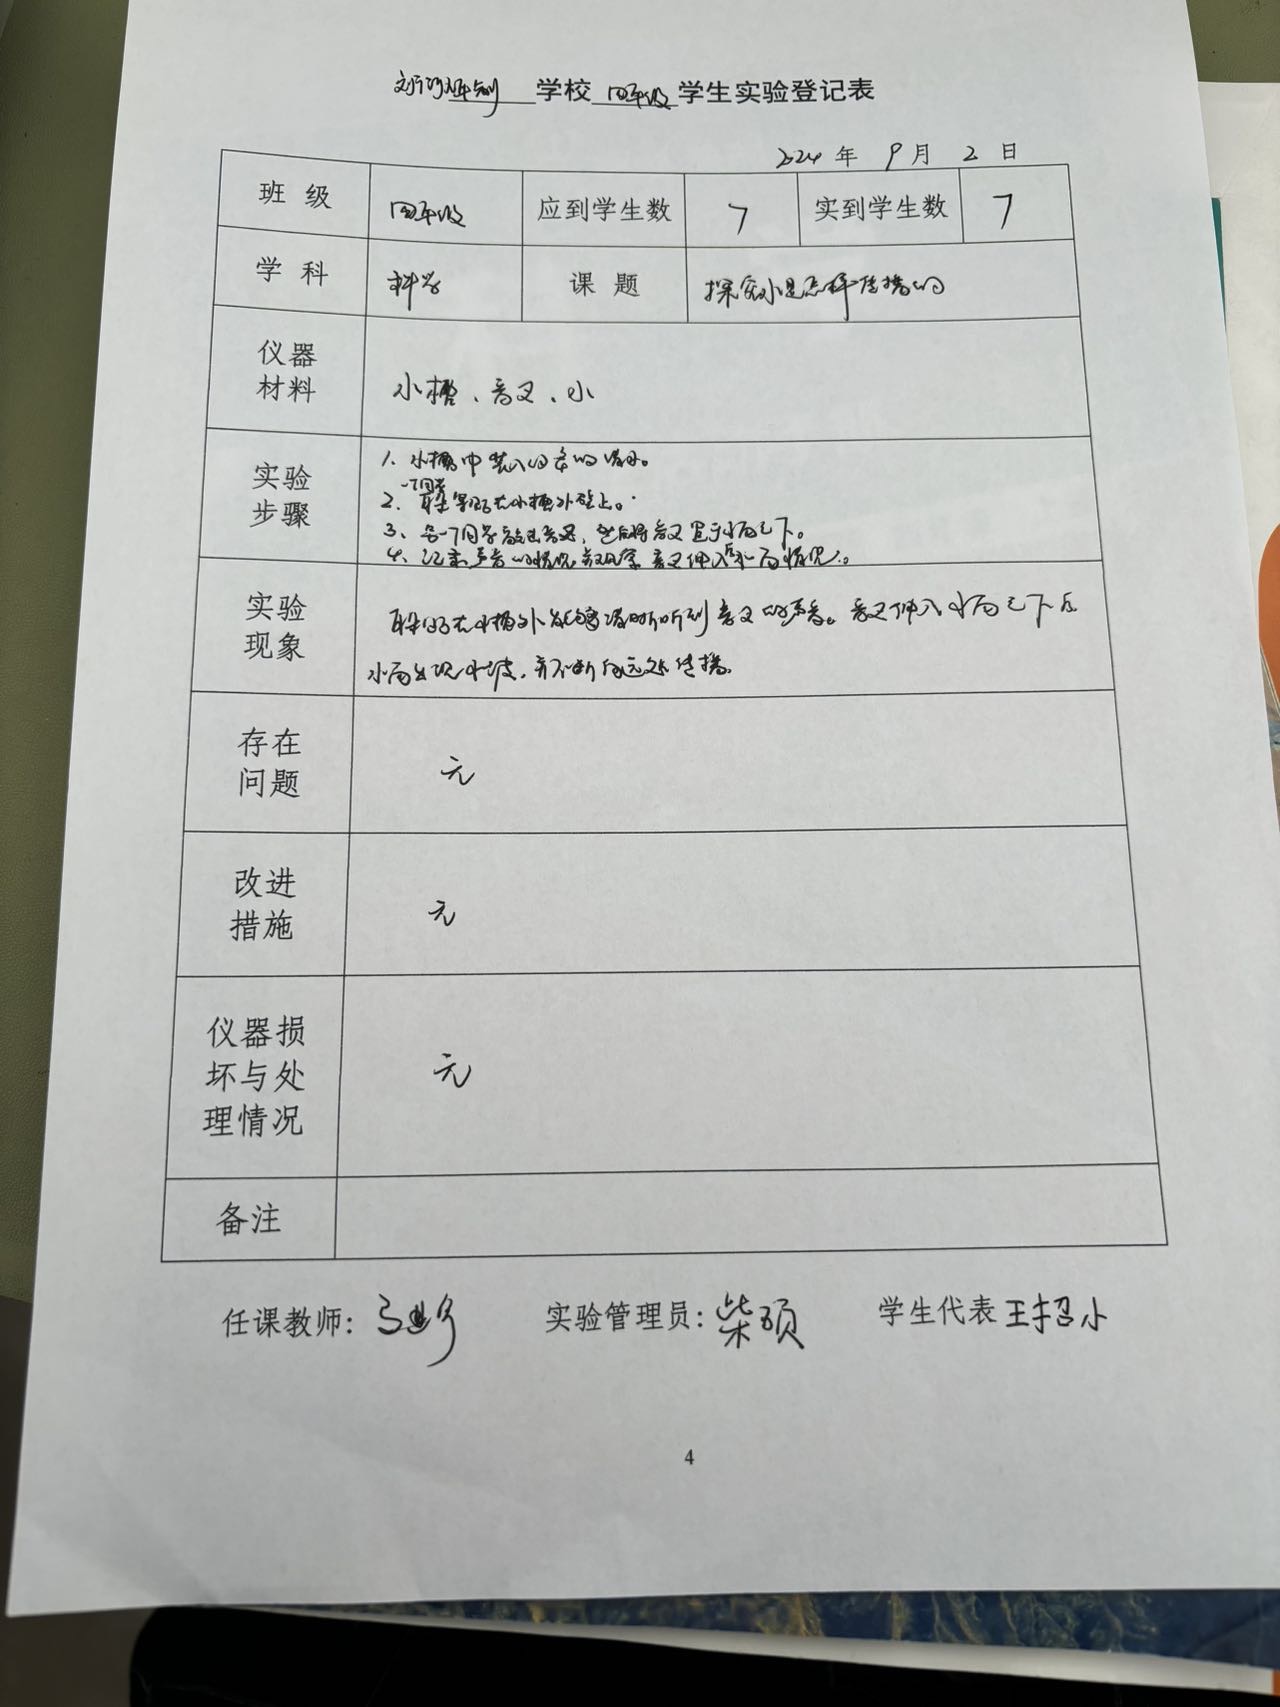 学校 四年级 学生实验登记表
2024 年 9 月 2 日
班级 四年级 应到学生数 7 实到学生数 7
学科 科学 课题 探究 是怎样传播的
仪器
材料
水槽、音叉、水
实验
步骤
1、水槽中装入 的清水。
2、一个同学 耳朵 贴在水槽外壁上。
3、另一个同学敲击音叉,然后将音叉置于水面之下。
4、记录声音的情况,并观察音叉伸入后水面情况。
实验
现象
耳朵贴在水槽外 时听到音叉的声音。音叉伸入水面之下后
水面出现水波,并不断向远处传播。
存在
问题
无
改进
措施
无
仪器损
坏与处
理情况
无
备注
任课教师: 实验管理员:柴硕 学生代表 王招小
4